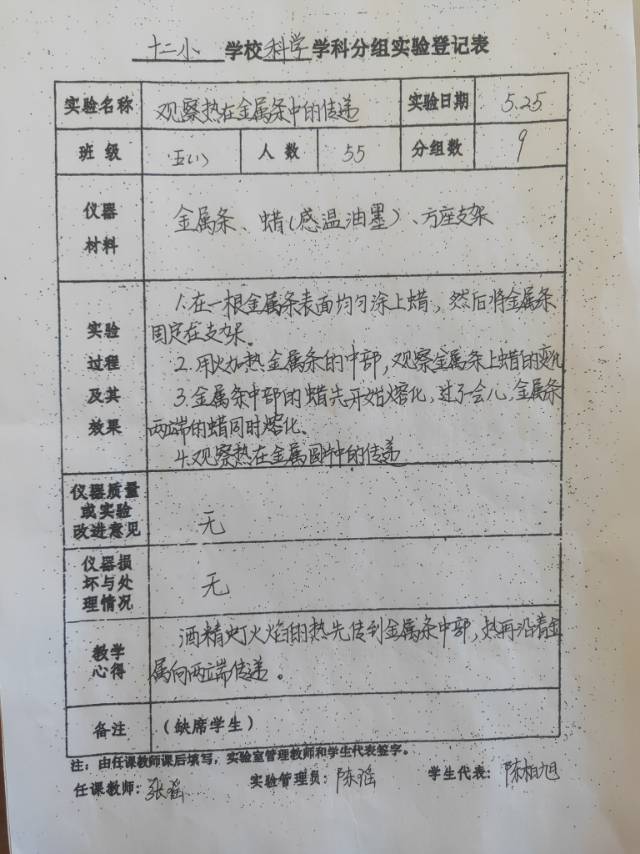 十二小 学校科学学科分组实验登记表
实验名称 观察热在金属条中的传递 实验日期 5.25
班级 五(1) 人数 55 分组数 9
仪器
材料
金属条、蜡(感温油墨)、方座支架
实验
过程
及其
效果
1.在一根金属条表面均匀涂上蜡,然后将金属条
固定在支架。
2.用火加热金属条的中部,观察金属条上蜡的变化
3.金属条中部的蜡先开始熔化,过了会儿,金属条
两端的蜡同时熔化.
4.观察热在金属圆片中的传递
仪器质量
或实验
改进意见
无
仪器损
坏与处
理情况
无
教学
心得
酒精灯火焰的热先传到金属条中部,热再沿着金
属向两端传递。
备注 (缺席学生)
注:由任课教师课后填写,实验室管理教师和学生代表签字。
任课教师:张瑶 实验管理员:陈瑶 学生代表:陈柏旭